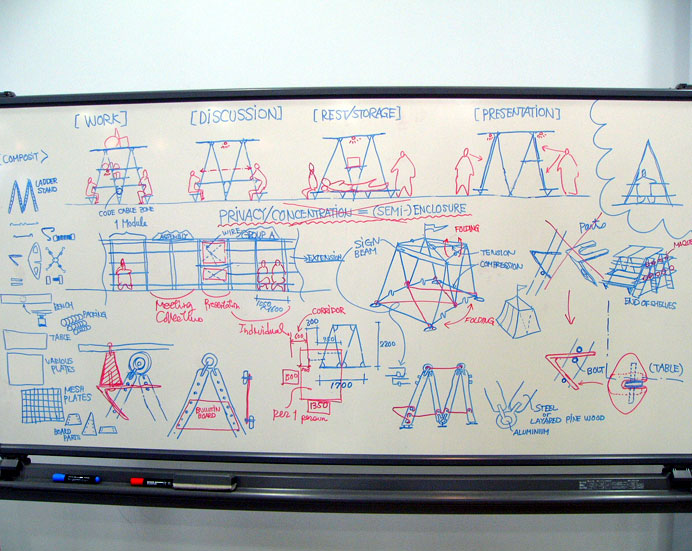 [WORK]
[DISCUSSION]
[REST/STORAGE]
[PRESENTATION]
[COMPOSIT>
LADDER
STAND
CODE CABLE ZONE
1 Module
PRIVACY/CONCENTRATION = (SEMI-)ENCLOSURE
ASSEMBLY
WIRE
GROUP A
EXTENSION
Meeting
Presentation
Individual
SIGN
BEAM
FOLDING
TENSION
COMPRESSION
FOLDING
Parts
END OF SHELVES
BENCH
PACKING
TABLE
VARIOUS
PLATES
MESH
PLATES
BOARD
PARTS
CORRIDOR
300
600
2200
500
1700
1350
per 1
person
BULLETIN
BOARD
BOLT
(TABLE)
STEEL
or
LAYARED PINE WOOD
ALUMINIUM